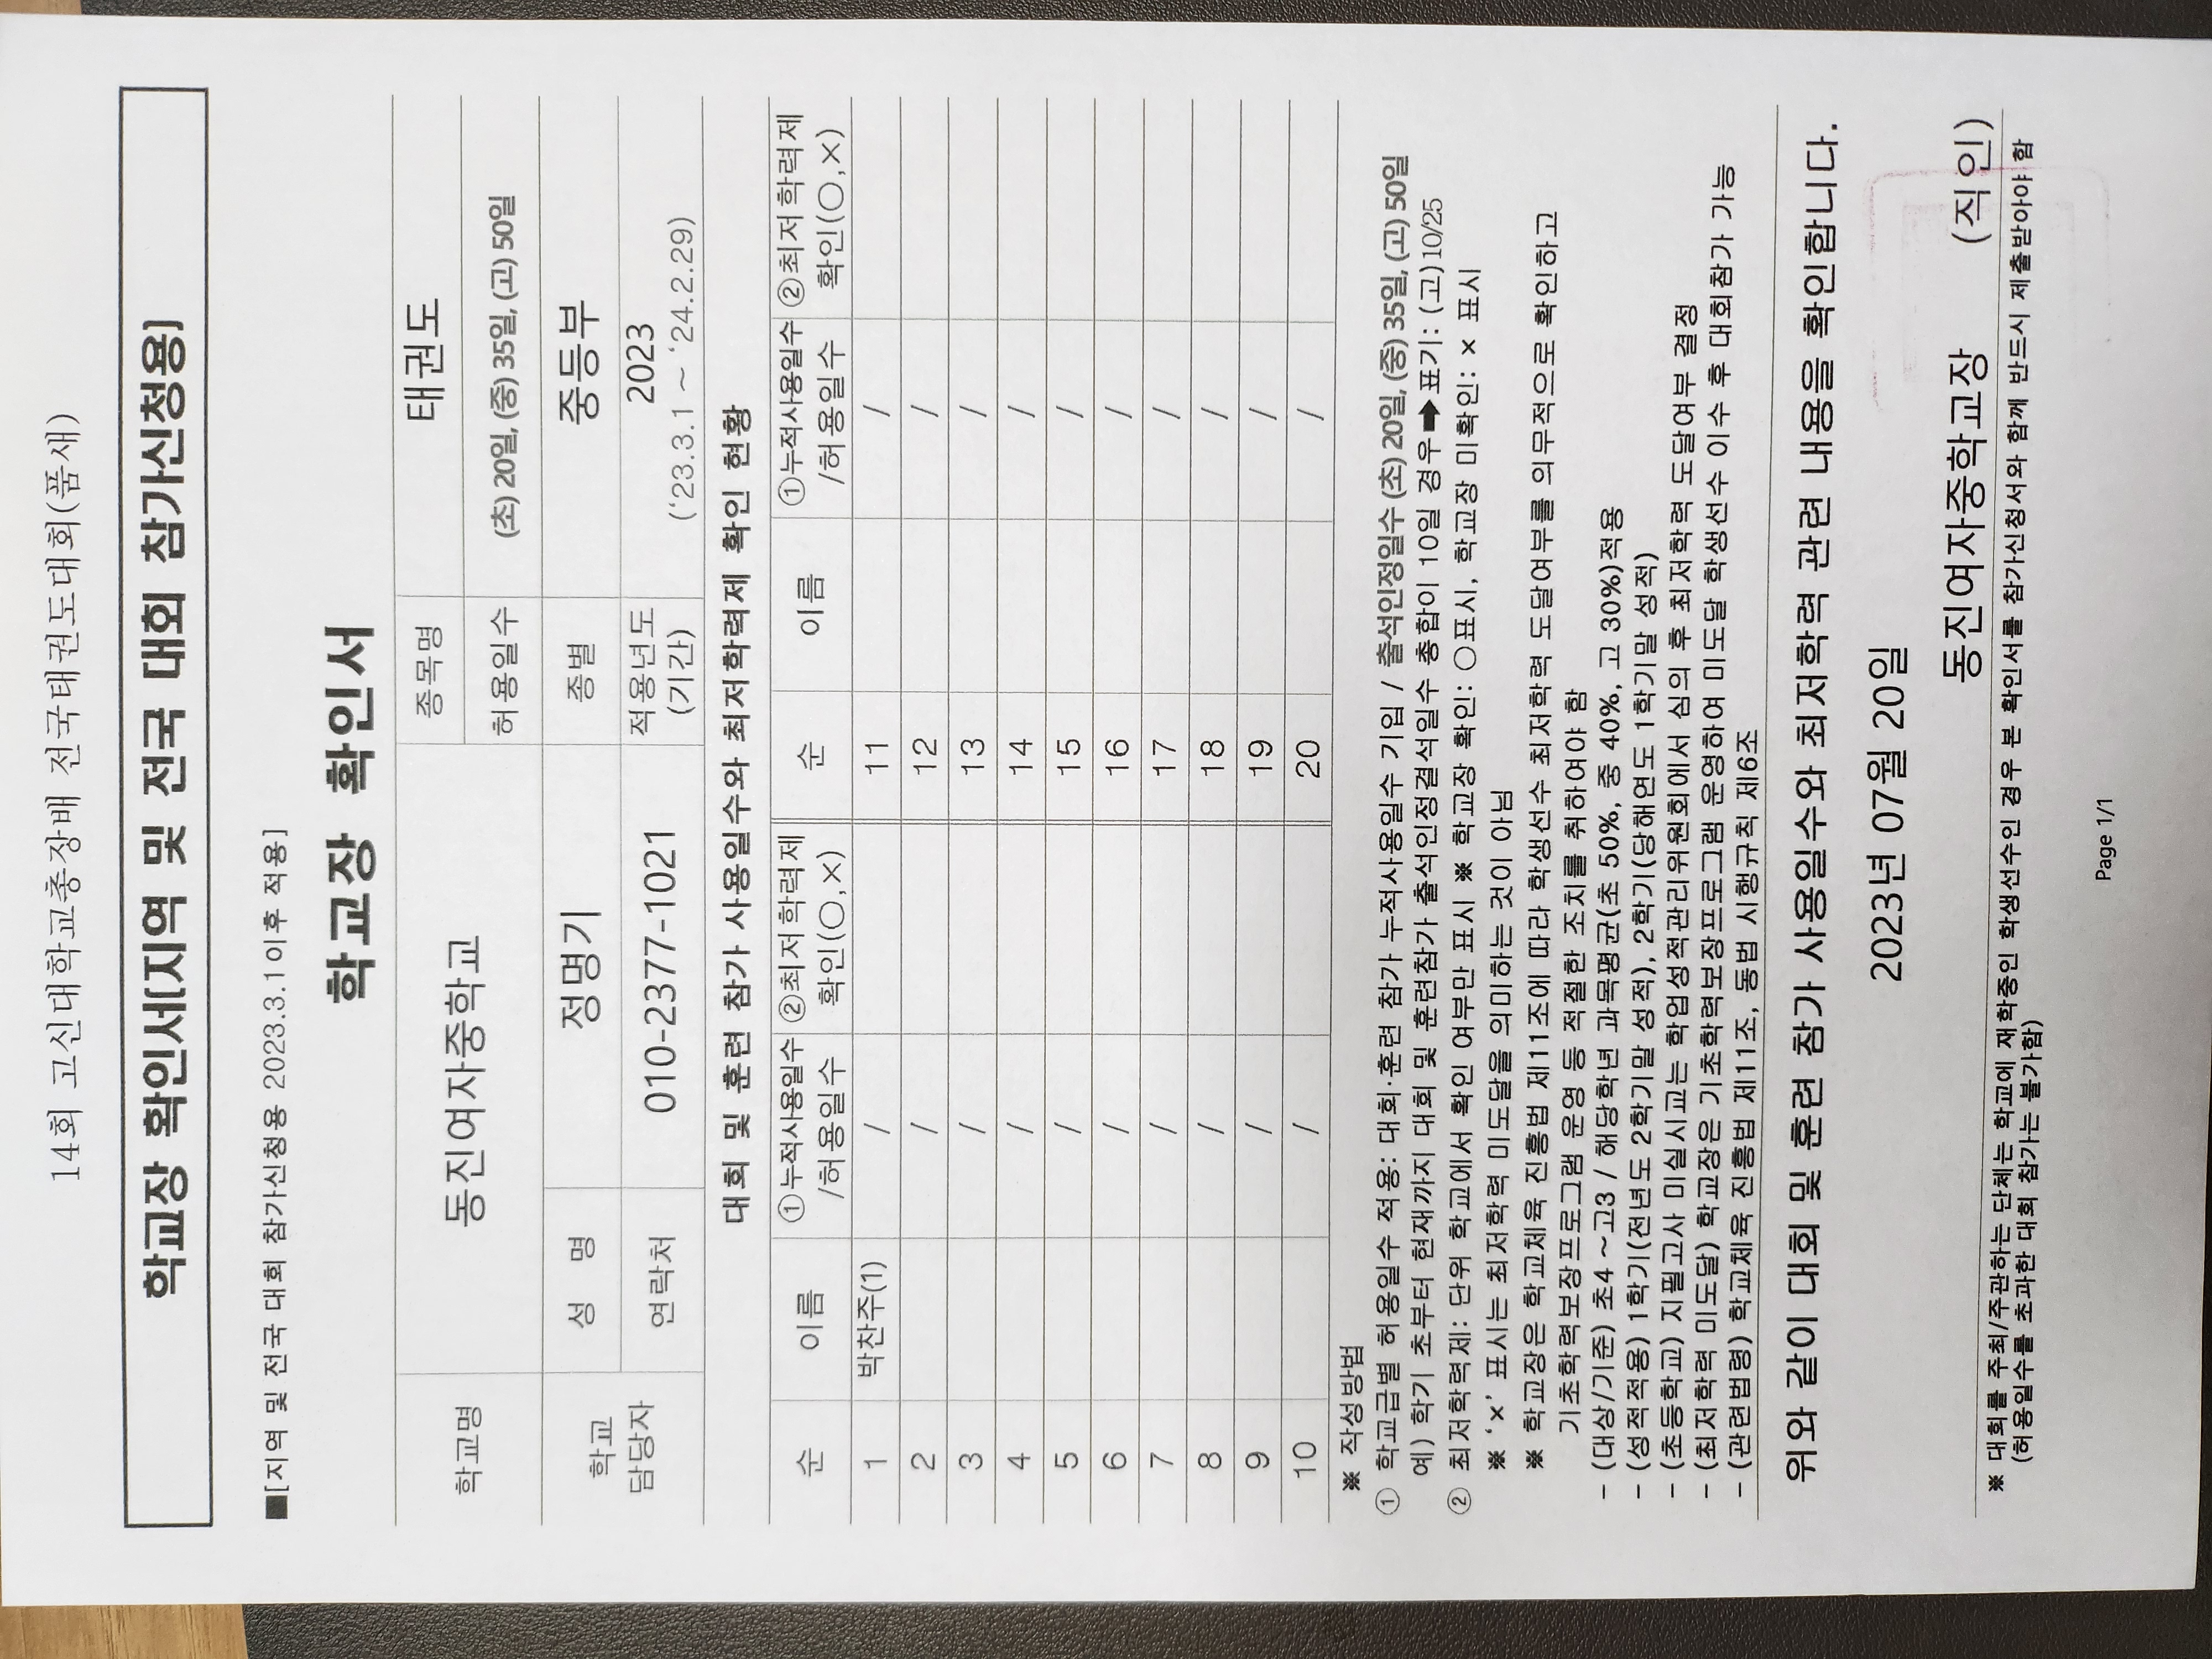 14회 고신대학교총장배 전국태권도대회(품새)
학교장 확인서(지역 및 전국 대회 참가신청용)
■[지역 및 전국 대회 참가신청용 2023.3.1이후 적용]
학교장 확인서
학교명 동진여자중학교 종목명 태권도
허용일수 (초) 20일, (중) 35일, (고) 50일
학교 담당자 성 명 정명기 종별 중등부
연락처 010-2377-1021 적용년도 (기간) 2023
('23.3.1 ~ '24.2.29)
대회 및 훈련 참가 사용일수와 최저학력제 확인 현황
순 이름 ①누적사용일수 /허용일수 ②최저학력제 확인(○,×) 순 이름 ①누적사용일수 /허용일수 ②최저학력제 확인(○,×)
1 박찬주(1) / 11 /
2 / 12 /
3 / 13 /
4 / 14 /
5 / 15 /
6 / 16 /
7 / 17 /
8 / 18 /
9 / 19 /
10 / 20 /
※ 작성방법
① 학교급별 허용일수 적용: 대회·훈련 참가 누적사용일수 기입 / 출석인정일수 (초) 20일, (중) 35일, (고) 50일
예) 학기 초부터 현재까지 대회 및 훈련참가 출석인정결석일수 총합이 10일 경우 ➡ 표기: (고)10/25
② 최저학력제: 단위 학교에서 확인 여부만 표시 ※ 학교장 확인: ○표시, 학교장 미확인: × 표시
※ '×' 표시는 최저학력 미도달을 의미하는 것이 아님
※ 학교장은 학교체육 진흥법 제11조에 따라 학생선수 최저학력 도달여부를 의무적으로 확인하고
기초학력보장프로그램 운영 등 적절한 조치를 취하여야 함
- (대상/기준) 초4 ~고3 / 해당학년 과목평균(초 50%, 중 40%, 고 30%)적용
- (성적적용) 1학기(전년도 2학기말 성적), 2학기(당해연도 1학기말 성적)
- (초등학교) 지필고사 미실시교는 학업성적관리위원회에서 심의 후 최저학력 도달여부 결정
- (최저학력 미도달) 학교장은 기초학력보장프로그램 운영하여 미도달 학생선수 이수 후 대회참가 가능
- (관련법령) 학교체육 진흥법 제11조, 동법 시행규칙 제6조
위와 같이 대회 및 훈련 참가 사용일수와 최저학력 관련 내용을 확인합니다.
2023년 07월 20일
동진여자중학교장 (직인)
※ 대회를 주최/주관하는 단체는 학교에 재학중인 학생선수인 경우 본 확인서를 참가신청서와 함께 반드시 제출받아야 함
(허용일수를 초과한 대회 참가는 불가함)
Page 1/1